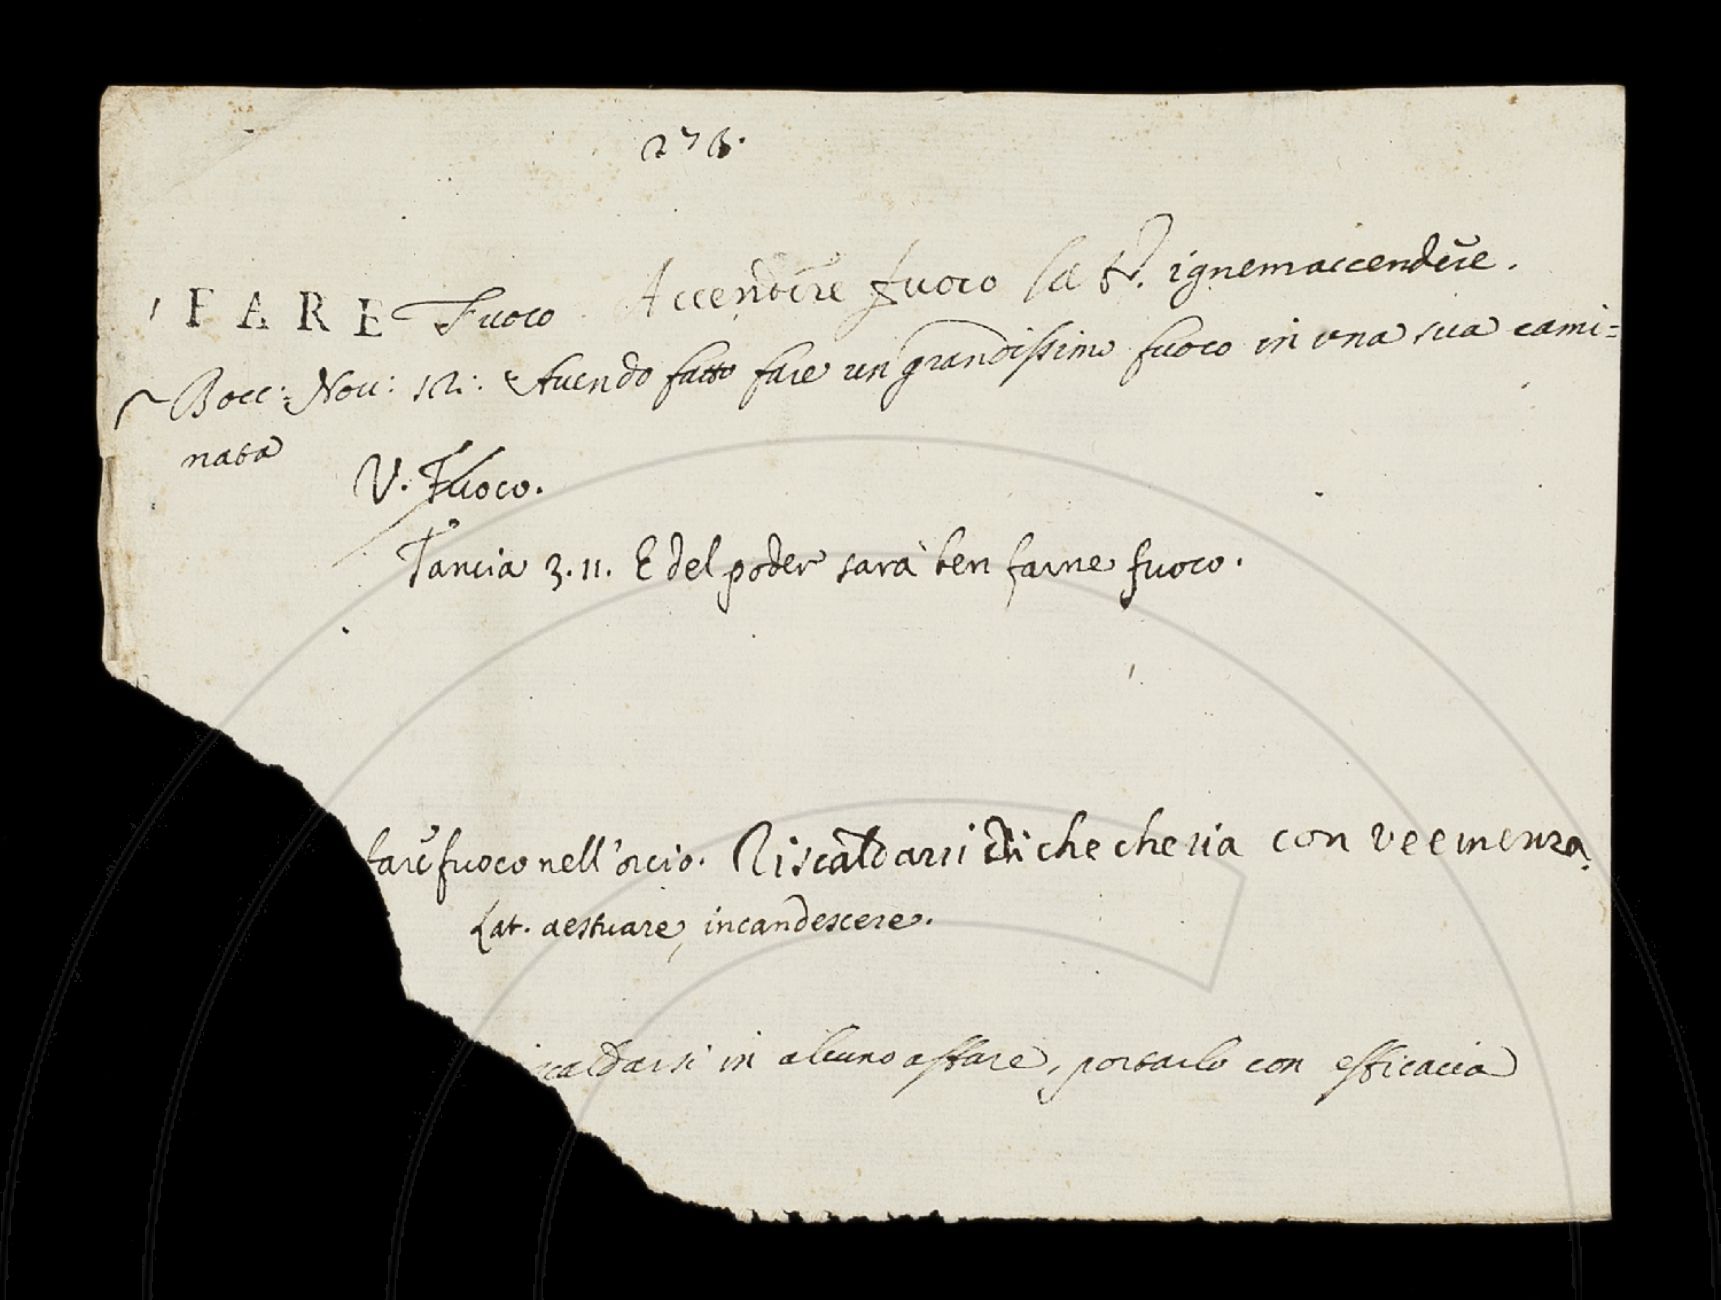 276.
FARE Fuoco Accendere fuoco lat. ignem accendere.
Bocc: Nov: 12: Avendo fatto fare un grandissimo fuoco in una sua cami=
nata
V. Fuoco.
Tancia 3.11. E del poder sarà ben farne fuoco.
fare fuoco nell'orcio. Riscaldarsi di che che sia con veemenza.
Lat. aestuare, incandescere.
scaldarsi in alcuno affare, portarlo con efficacia